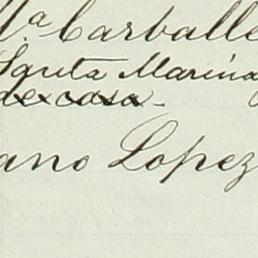 Mª Carballe
Santa Marina
de casa.
ano Lopez